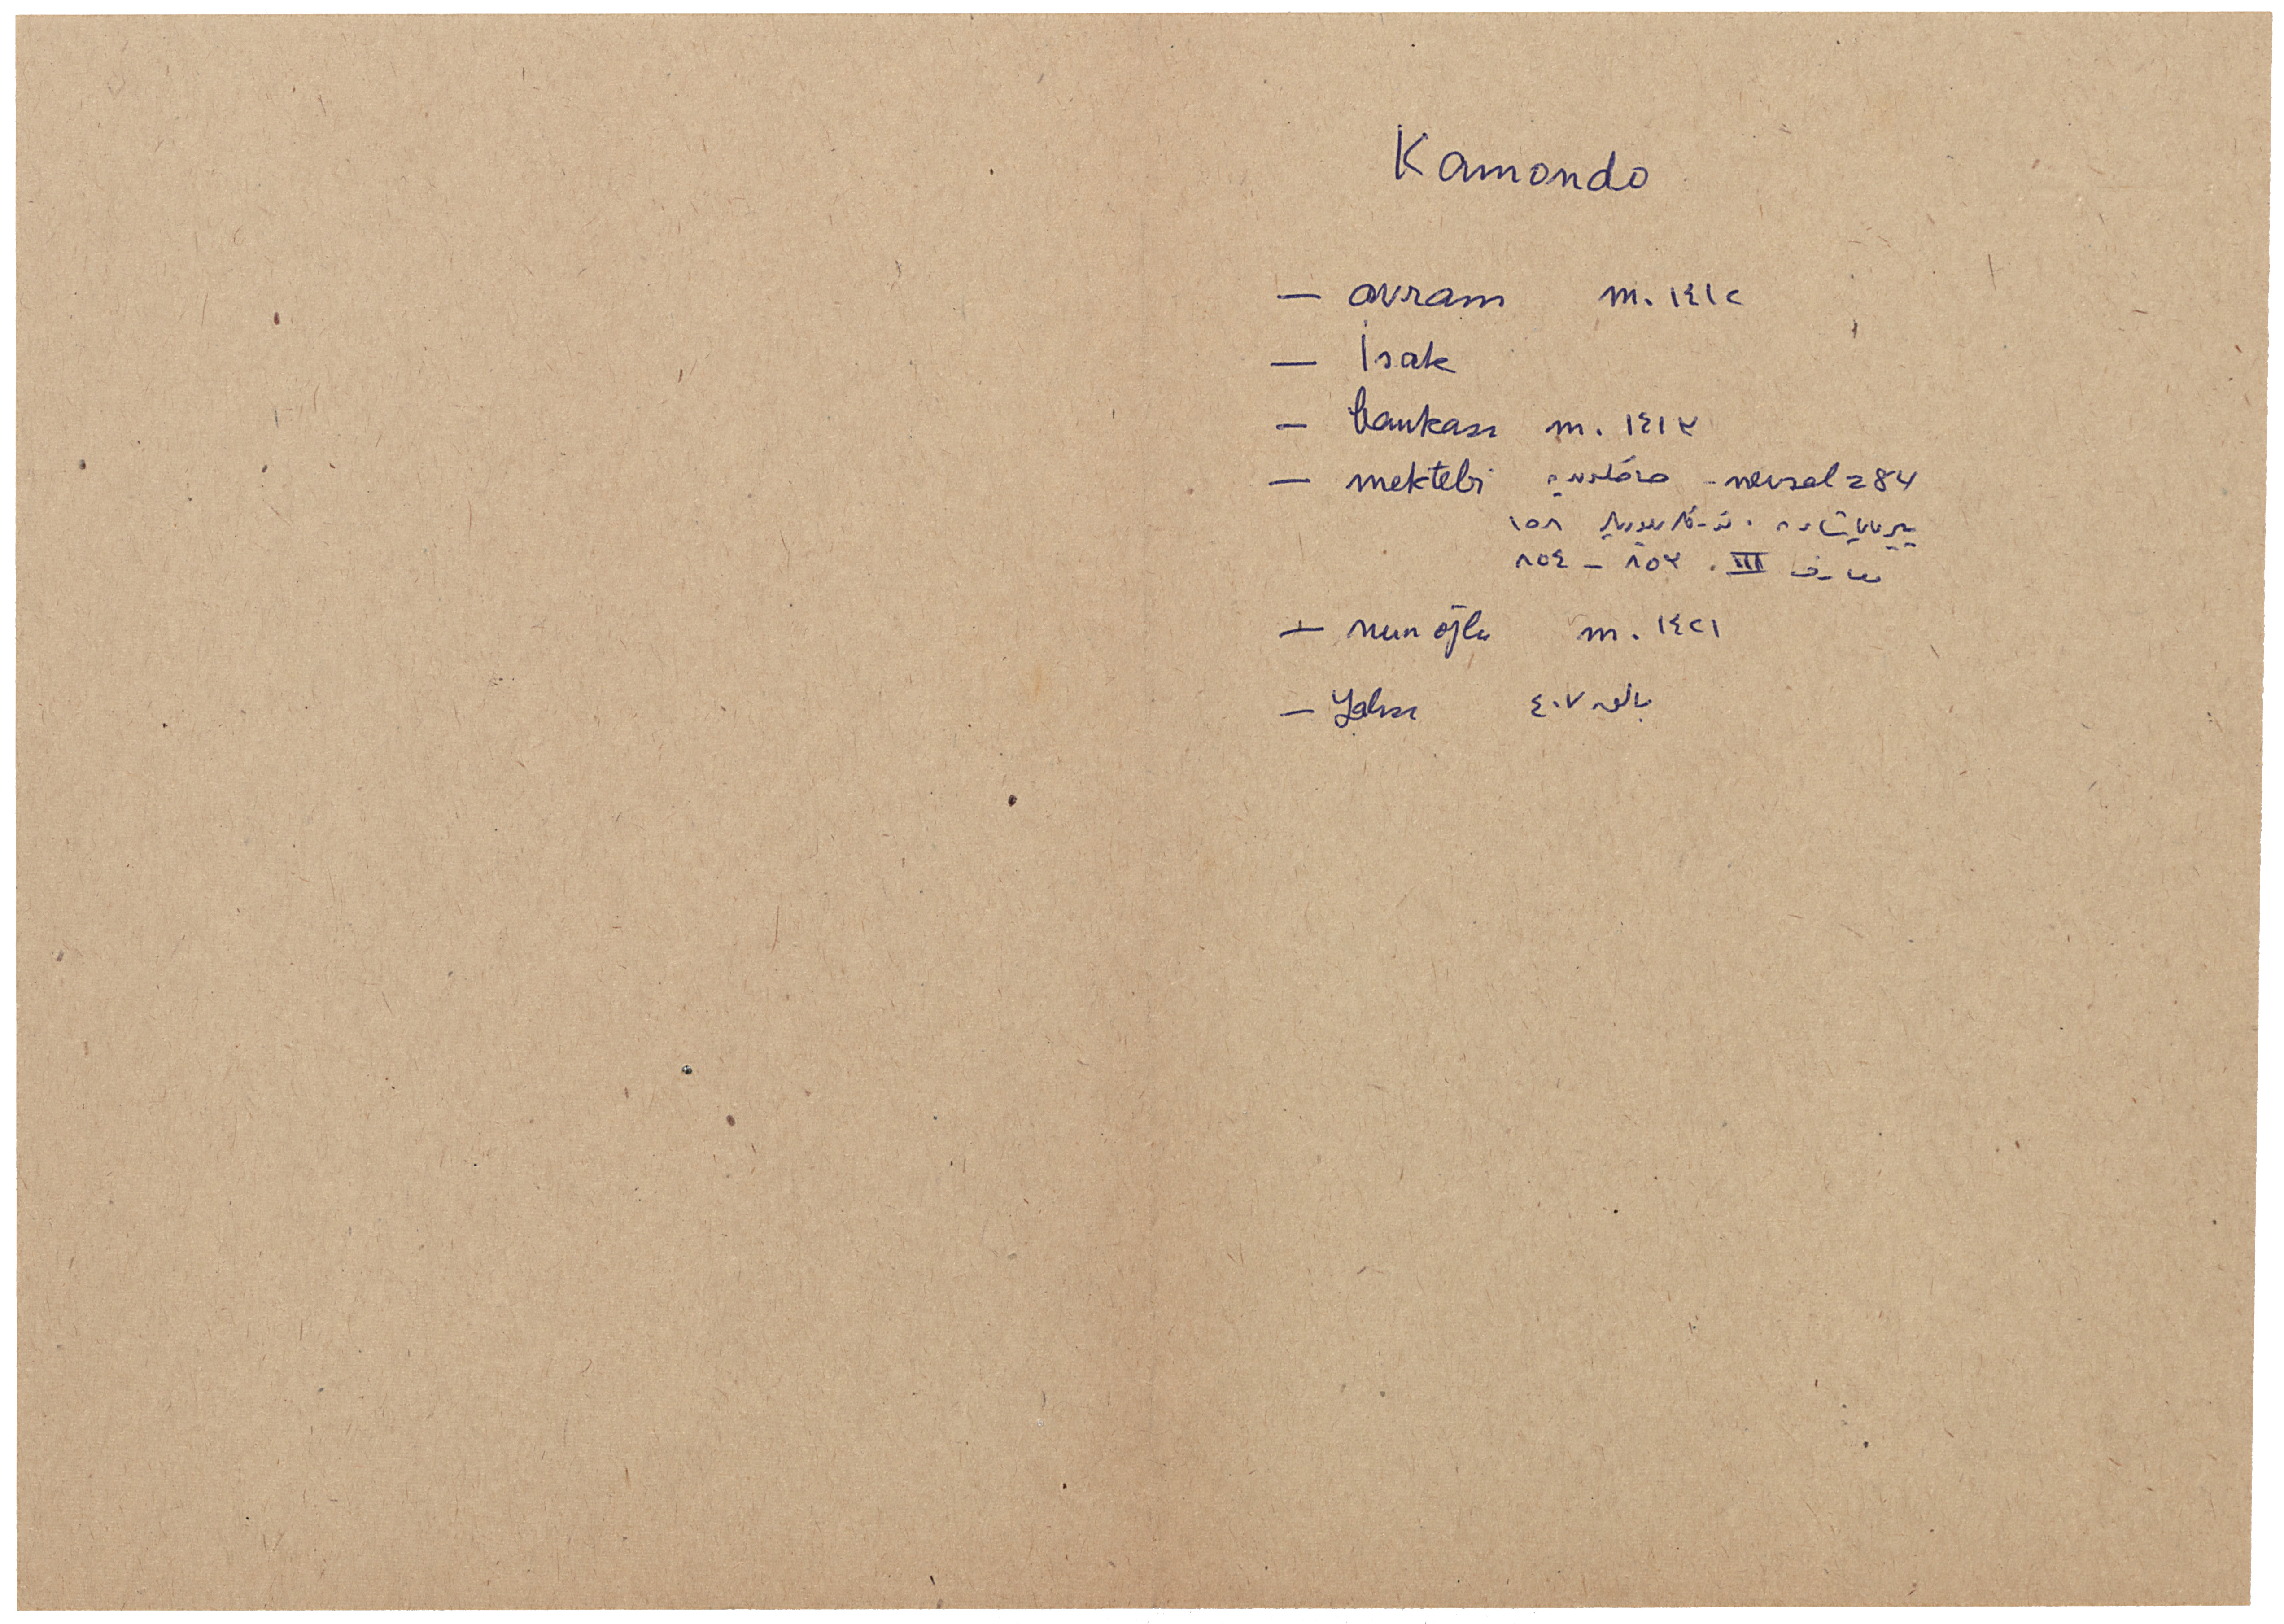 Kamondo
— avram m. ١٤١٢
— İsak
— bankası m. ١٤١٣
— mektebi - nevsal 284
١٥٨
٨٥٤ – ٨٥٣ . III
— nun oğlu m. ١٤٢١
— Yalısı ٤٠٧